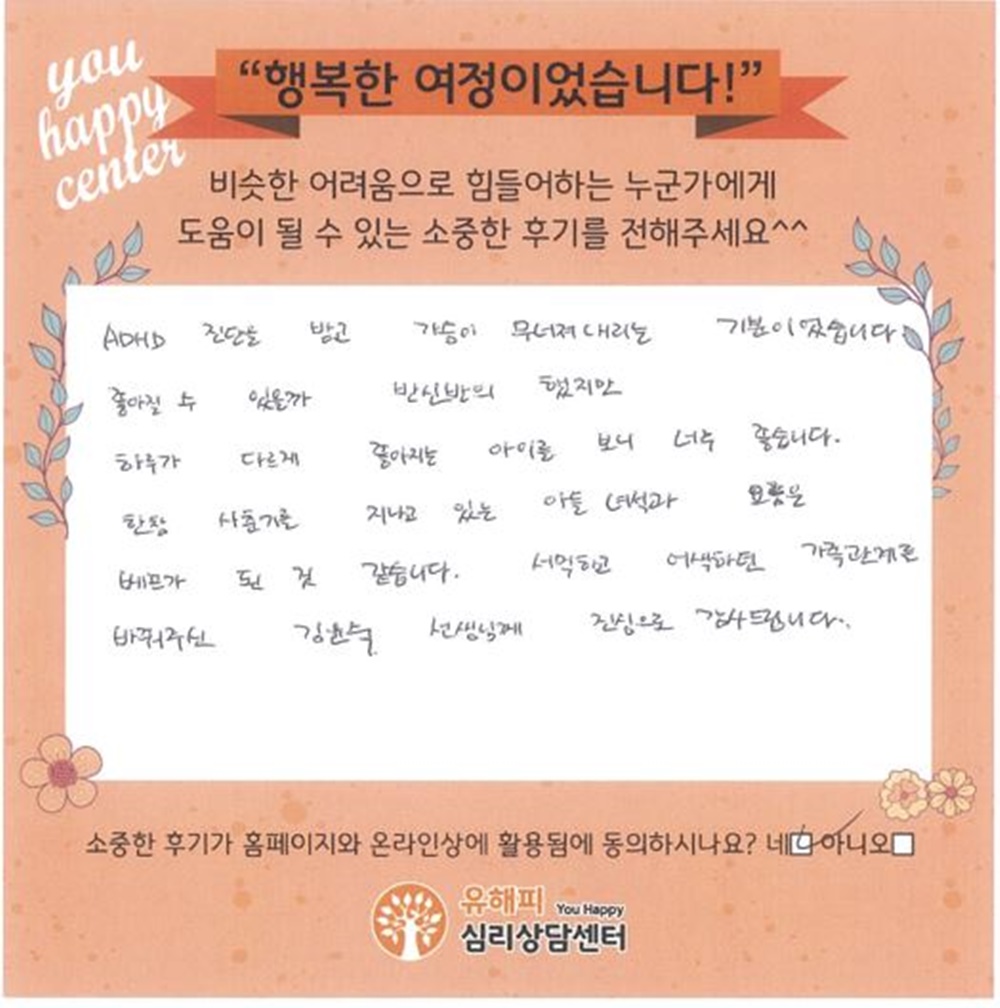 you
happy
center
“행복한 여정이었습니다!”
비슷한 어려움으로 힘들어하는 누군가에게
도움이 될 수 있는 소중한 후기를 전해주세요^^
ADHD 진단을 받고 가슴이 무너져 내리는 기분이었습니다
좋아질 수 있을까 반신반의 했지만
하루가 다르게 좋아지는 아이를 보니 너무 좋습니다.
한참 사춘기를 지나고 있는 아들 녀석과 요즘은
베프가 된 것 같습니다. 서먹하고 어색하던 가족관계를
바꿔주신 김윤숙 선생님께 진심으로 감사드립니다..
소중한 후기가 홈페이지와 온라인상에 활용됨에 동의하시나요? 네☑ 아니오□
유해피 You Happy
심리상담센터